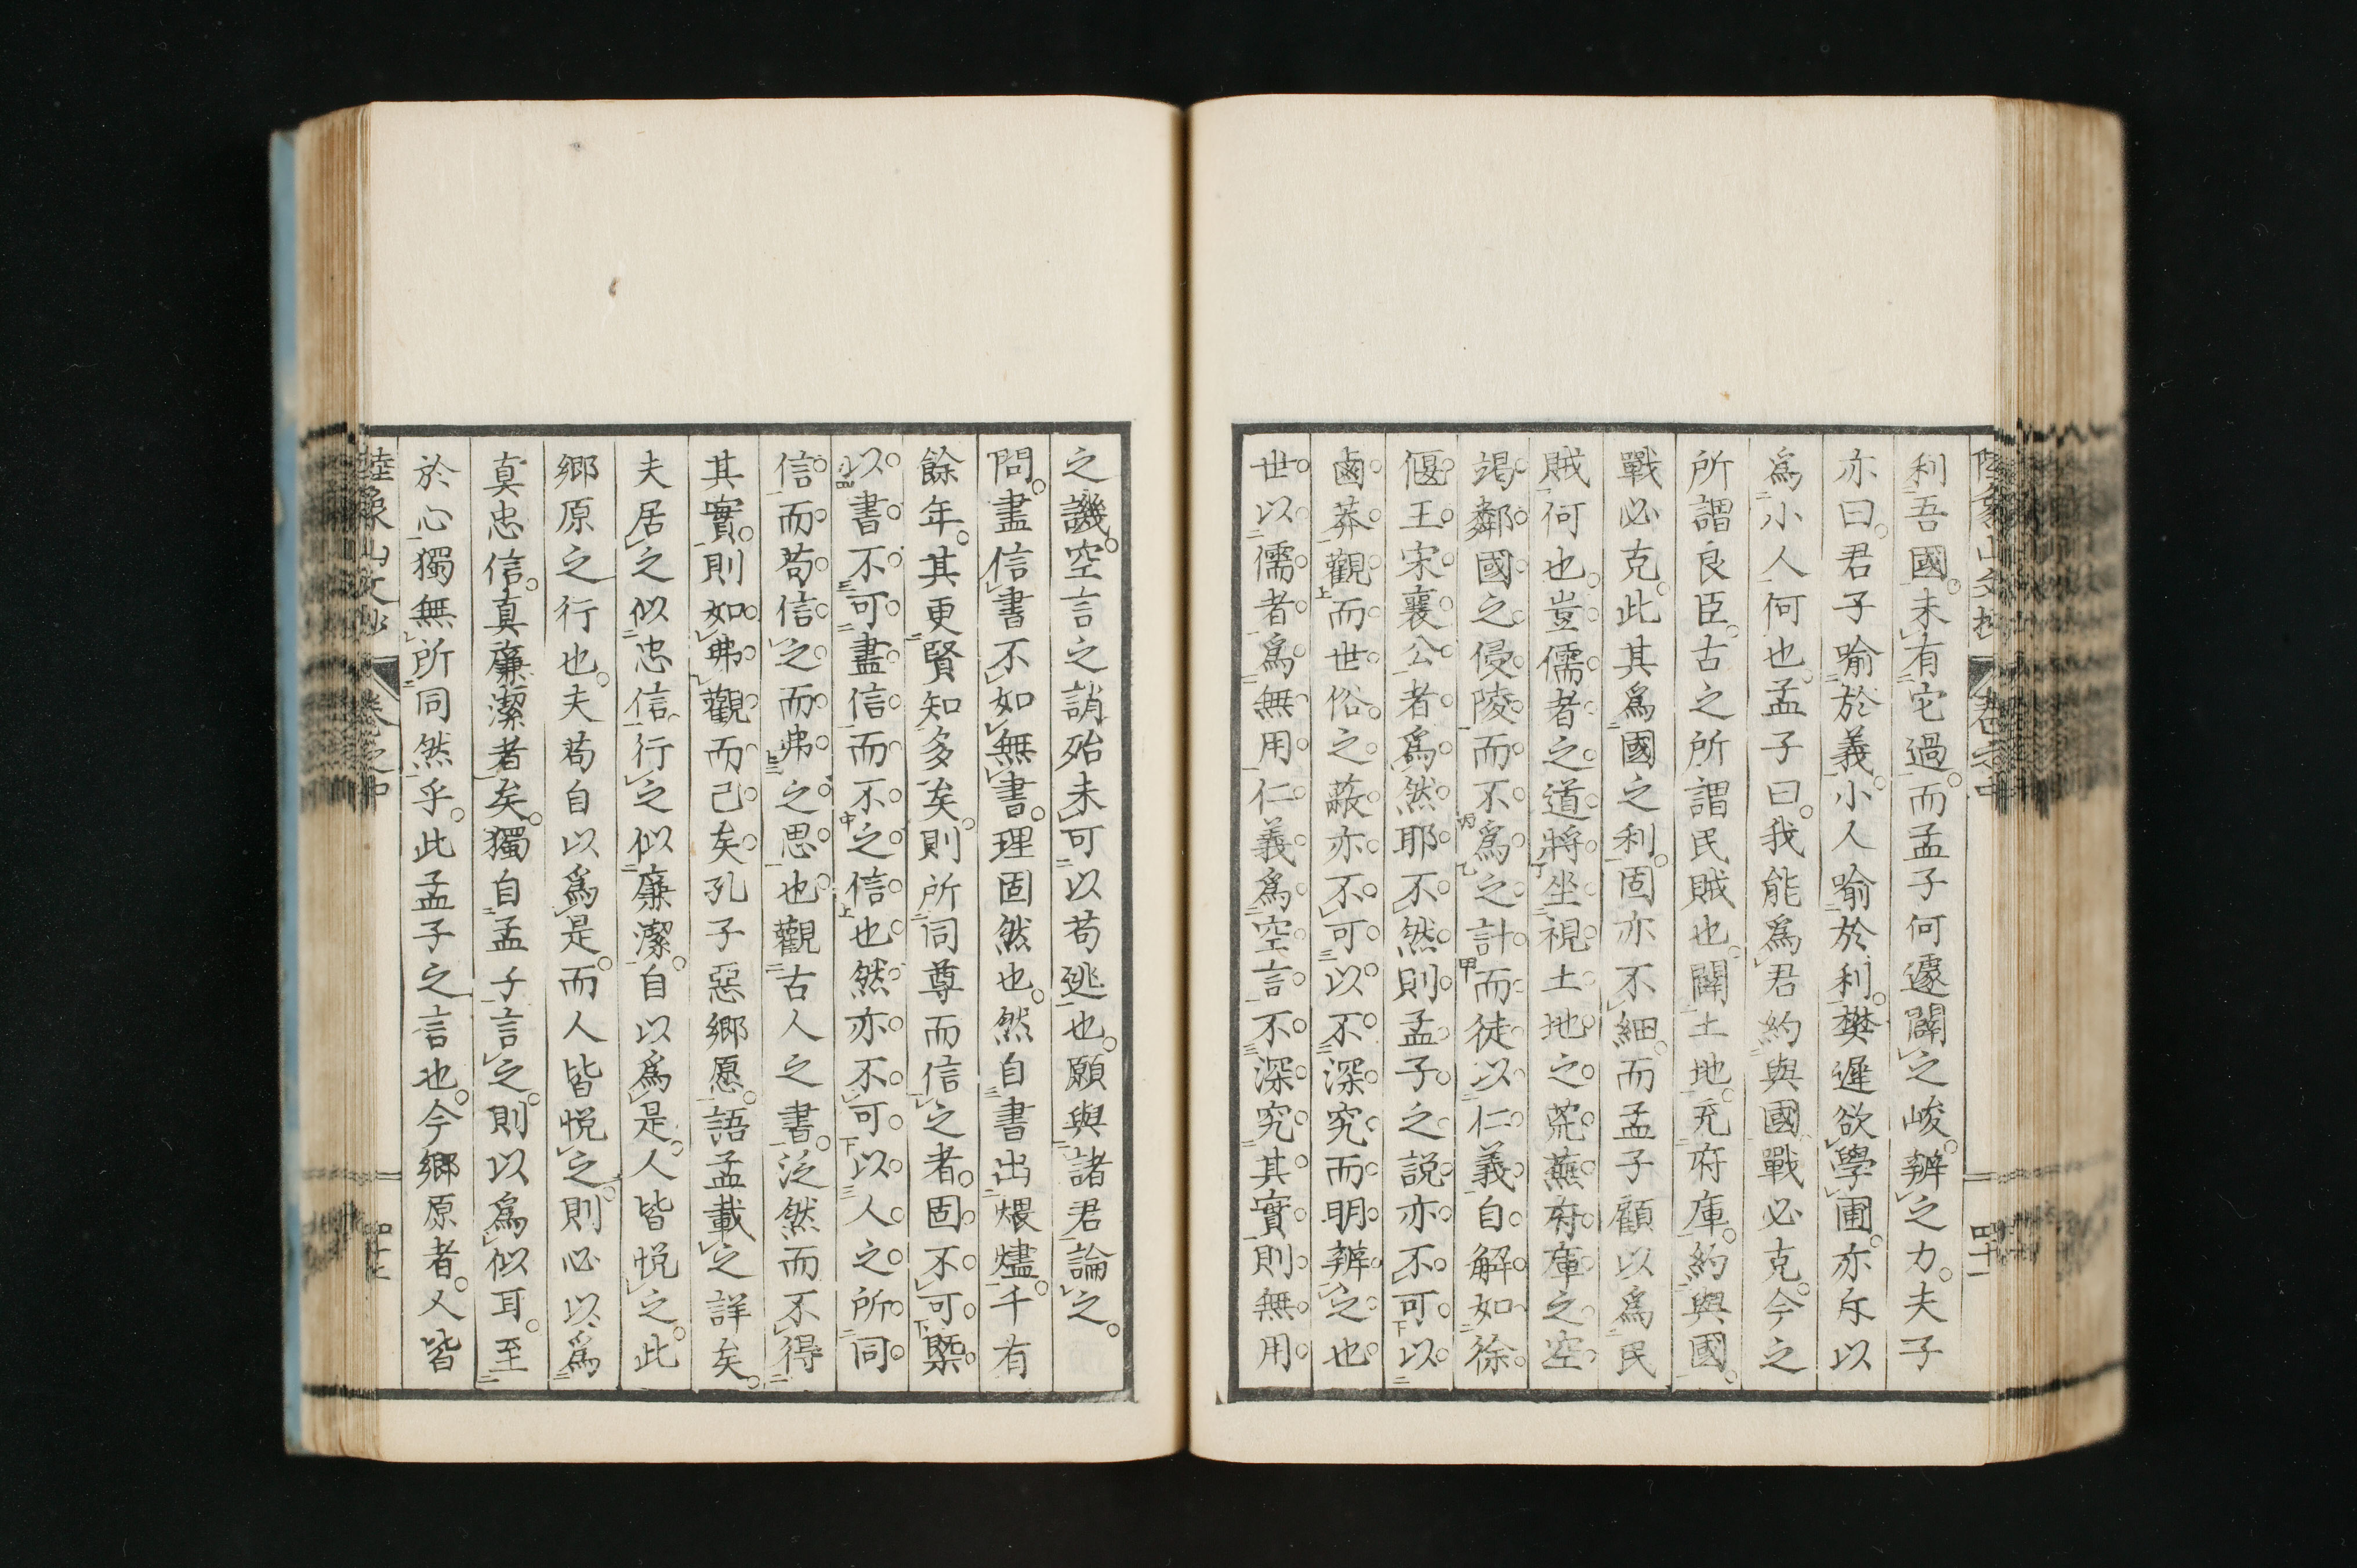 利吾國。未有它過。而孟子何遽闢之峻。辨之力。夫子
亦曰。君子喻於義。小人喻於利。樊遲欲學圃。亦斥以
爲小人何也。孟子曰。我能爲君約與國戰必克。今之
所謂良臣。古之所謂民賊也。闢土地。充府庫。約與國。
戰必克。此其爲國之利。固亦不細。而孟子顧以爲民
賊何也。豈儒者之道將坐視土地之荒蕪府庫之空
竭鄰國之侵陵而不爲之計而徒以仁義自解如徐
偃王宋襄公者爲然耶不然則孟子之説亦不可以
鹵莽觀而世俗之蔽亦不可以不深究而明辨之也
世以儒者爲無用仁義爲空言不深究其實則無用
之譏。空言之誚殆未可以苟逃也。願與諸君論之。
問。盡信書不如無書。理固然也。然自書出煨燼。千有
餘年。其更賢知多矣。則所同尊而信之者。固不可槩
以書不可盡信而不之信也然亦不可以人之所同
信而苟信之而弗之思也觀古人之書。泛然而不得
其實。則如弗觀而己矣孔子惡鄉愿。語孟載之詳矣。
夫居之似忠信行之似廉潔。自以爲是。人皆悦之。此
鄉原之行也。夫苟自以爲是。而人皆悦之。則必以爲
真忠信。真廉潔者矣。獨自孟子言之。則以爲似耳。至
於心獨無所同然乎。此孟子之言也。今鄉原者。人皆
陸象山文抄
卷之中
四十一